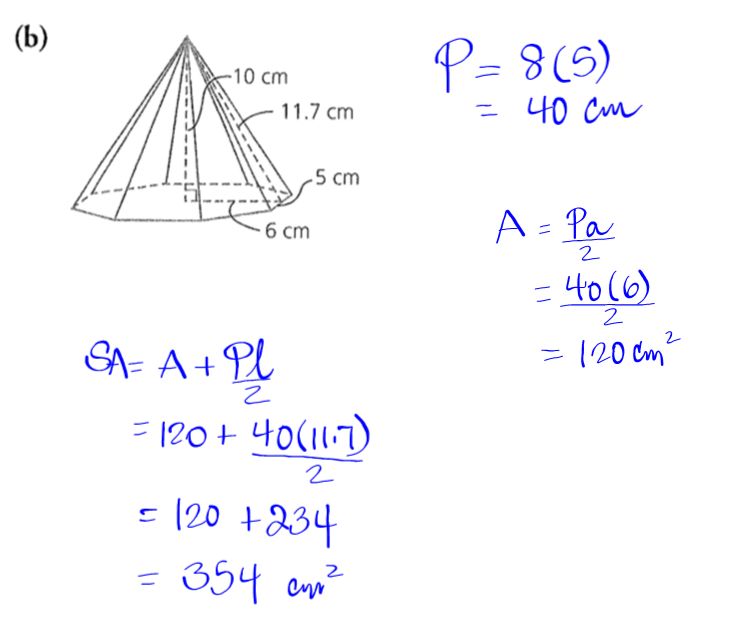 (b)
10 cm
11.7 cm
5 cm
6 cm
P = 8(5)
= 40 cm
A = Pa/2
= 40(6)/2
= 120 cm²
SA = A + Pl/2
= 120 + 40(11.7)/2
= 120 + 234
= 354 cm²